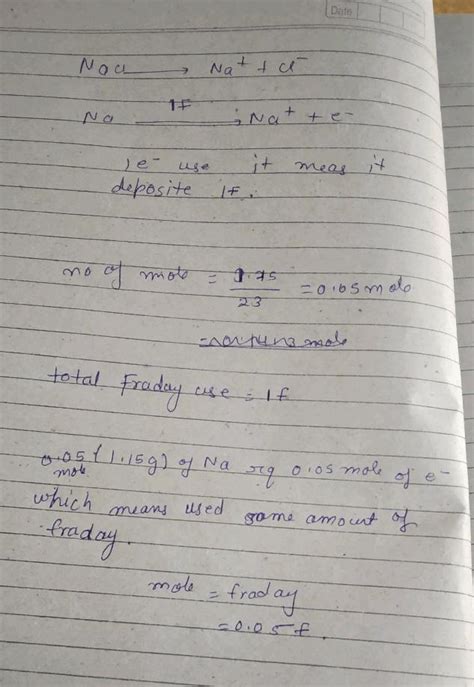 Date
NaCl → Na⁺ + Cl⁻
Na 1F → Na⁺ + e⁻
1 e⁻ use it meas it
deposite 1F.
no of mole = 1.15/23 = 0.05 mole
mole
total Fraday use = 1f
0.05 mole (1.15g) of Na req 0.05 mole of e⁻
which means used same amount of
fraday.
mole = fraday
= 0.05 f.